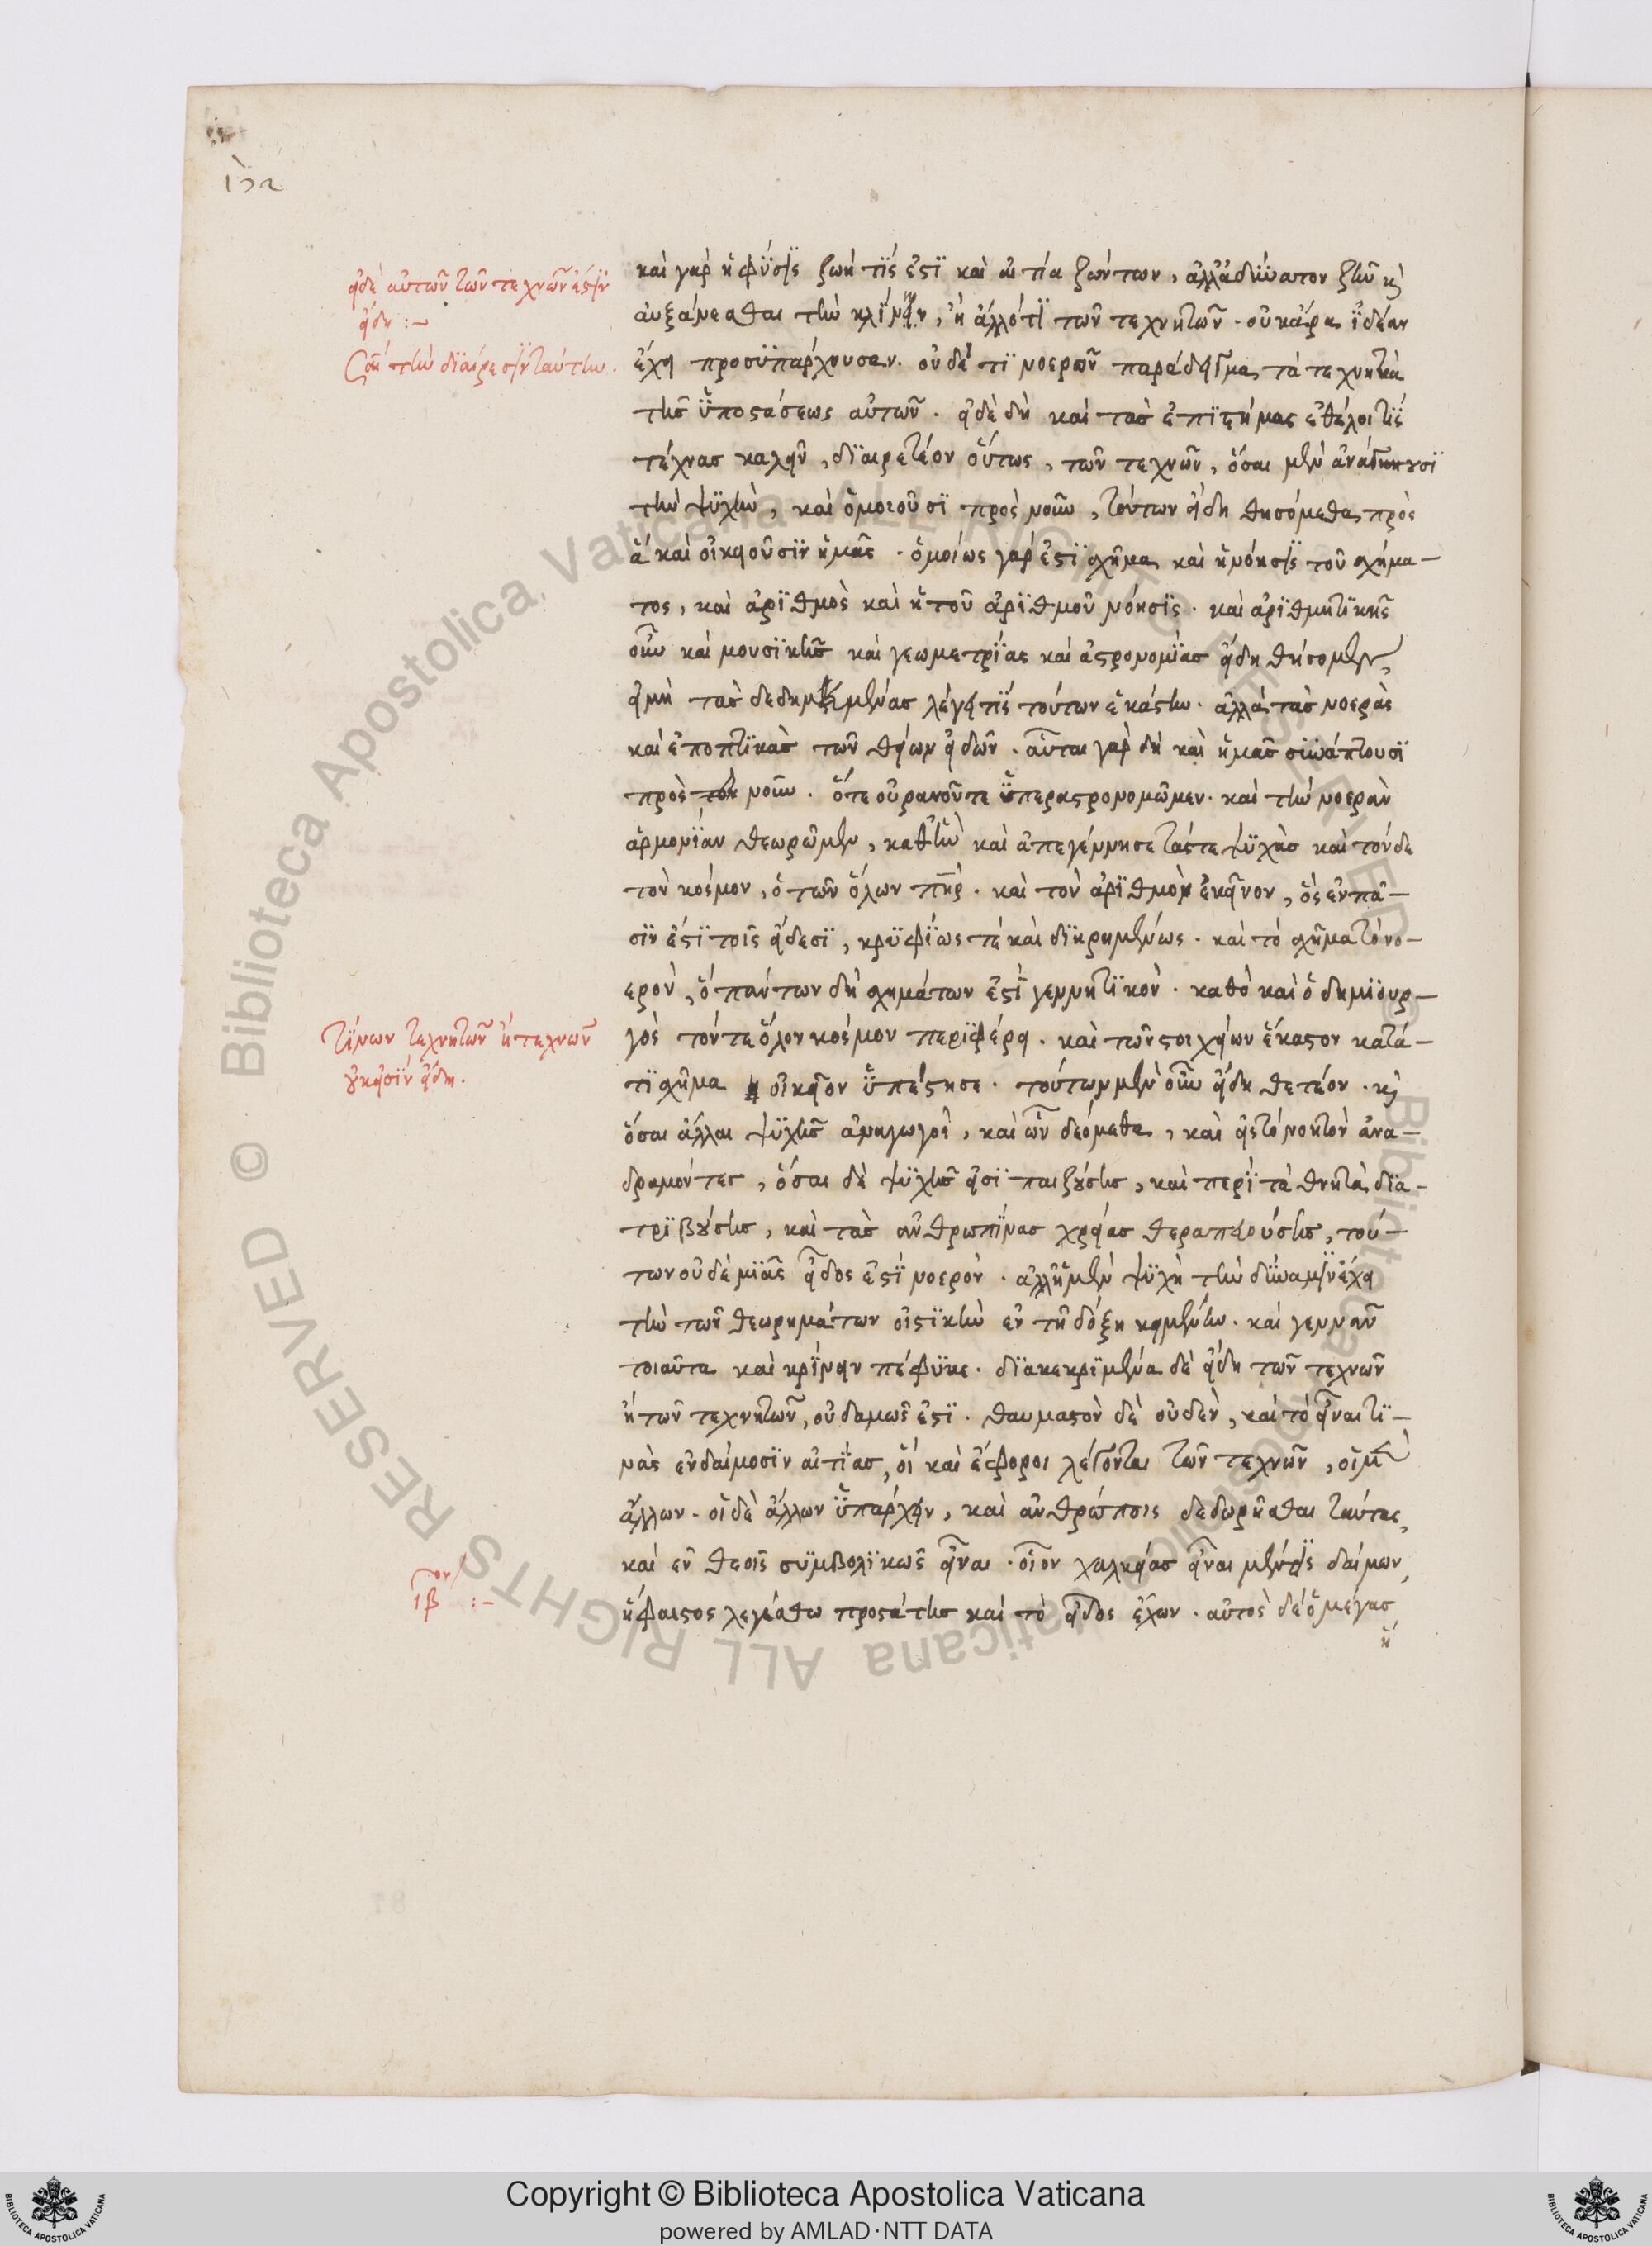 εἰ δὲ αὐτῶν τῶν τεχνῶν ἐστὶν
εἴδη :~
ση τὴν διαίρεσιν ταύτην.
καὶ γὰρ ἡ φύσις ζωή τις ἐστὶ καὶ αἰτία ζώντων, ἀλλ' ἀδύνατον ζῆν κ
αὐξάνεσθαι τὴν κλίνην, ἢ ἄλλό τι τῶν τεχνητῶν. οὐκ ἄρα ἰδέαν
ἔχει προσυπάρχουσαν. οὐδέ τι νοερῶν παράδειγμα τὰ τεχνητὰ
τῆς ὑποστάσεως αὐτῶν. εἰ δὲ δὴ καὶ τὰς ἐπιστήμας ἐθέλοι τίς
τέχνας καλεῖν, διαιρετέον οὕτως, τῶν τεχνῶν, ὅσαι μὲν ἀνάγουσι
τὴν ψυχὴν, καὶ ὁμοιοῦσι πρὸς νοῦν, τούτων εἴδη θησόμεθα, πρὸς
ἃ καὶ οἰκειοῦσιν ἡμᾶς. ὁμοίως γάρ ἐστι σχῆμα καὶ ἡ νόησις τοῦ σχήμα-
τος, καὶ ἀριθμὸς καὶ ἡ τοῦ ἀριθμοῦ νόησις. καὶ ἀριθμητικῆς
οὖν καὶ μουσικῆς καὶ γεωμετρίας καὶ ἀστρονομίας εἴδη θήσομεν,
εἰ μὴ τὰς δεδημευμένας λέγει τίς τούτων ἑκάστην. ἀλλὰ τὰς νοερὰς
καὶ ἐποπτικὰς τῶν θείων εἰδῶν. αὗται γὰρ δὴ καὶ ἡμᾶς συνάπτουσι
πρὸς τὸν νοῦν. ὅτε οὐρανοῦ τε ὑπεραστρονομῶμεν. καὶ τὴν νοερὰν
ἁρμονίαν θεωρῶμεν, καθ' ἣν καὶ ἀπεγέννησε τάς τε ψυχὰς καὶ τόνδε
τὸν κόσμον, ὁ τῶν ὅλων πηρ. καὶ τὸν ἀριθμὸν ἐκεῖνον, ὃς ἐν πᾶ-
σιν ἐστὶ τοῖς εἴδεσι, κρυφίως τέ καὶ διῃρημένως. καὶ τὸ σχῆμα τὸ νο-
ερὸν, ὃ πάντων δὴ σχημάτων ἐστὶ γεννητικὸν. καθὸ καὶ ὁ δημιουρ-
γὸς τόν τε ὅλον κόσμον περιφέρει. καὶ τῶν στοιχείων ἕκαστον κατά
τι σχῆμα οἰκεῖον ὑπέστησε. τούτων μὲν οὖν εἴδη θετέον. κ
ὅσαι ἄλλαι ψυχῆς ἀναγωγοὶ, καὶ ὧν δεόμεθα, καὶ εἰς τὸ νοητὸν ἀνα-
δραμόντες, ὅσαι δὲ ψυχῆς εἰσὶ παιζούσης, καὶ περὶ τὰ θνητὰ δια-
τριβούσης, καὶ τὰς ἀνθρωπίνας χρείας θεραπευούσης, τού-
των οὐδὲ μιᾶς εἶδος ἐστὶ νοερὸν. ἀλλ' ἡ μὲν ψυχὴ τὴν δύναμιν ἔχει
τὴν τῶν θεωρημάτων οἰστικὴν ἐν τῇ δόξῃ κειμένην. καὶ γεννᾶν
τοιαῦτα καὶ κρίνειν πέφυκε. διακεκριμένα δὲ εἴδη τῶν τεχνῶν
ἢ τῶν τεχνητῶν, οὐδαμῶς ἐστὶ. θαυμαστὸν δὲ οὐδὲν, καὶ τὸ εἶναι τι-
νὰς ἐν δαίμοσιν αἰτίας, οἳ καὶ ἔφοροι λέγονται τῶν τεχνῶν, οἱ μὲν
ἄλλων. οἱ δὲ ἄλλων ὑπάρχειν, καὶ ἀνθρώποις δεδωρῆσθαι ταύτας,
καὶ ἐν θεοῖς συμβολικῶς εἶναι. οἷον χαλκείας εἶναι μέν τις δαίμων,
ἥφαιστος λεγέσθω προστάτης καὶ τὸ εἶδος ἔχων. αὐτὸς δὲ ὁ μέγας
ἥ
τίνων τεχνητῶν ἢ τεχνῶν
οὐκ εἰσὶν εἴδη.
ιβον :~